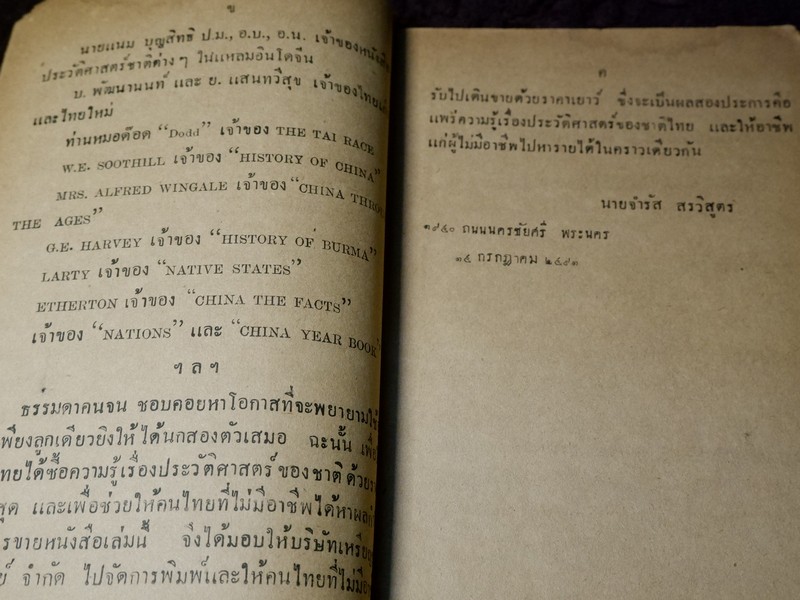 ข
นายแนม บุญสิทธิ ป.ม., อ.บ., อ.น. เจ้าของหนังสือ
ประวัติศาสตร์ชาติต่าง ๆ ในแหลมอินโดจีน
บ. พัฒนานนท์ และ ย. แสนทวีสุข เจ้าของไทย
และไทยใหม่
ท่านหมอด๊อด "Dodd" เจ้าของ THE TAI RACE
W.E. SOOTHILL เจ้าของ "HISTORY OF CHINA"
MRS. ALFRED WINGALE เจ้าของ "CHINA
THE AGES"
G.E. HARVEY เจ้าของ "HISTORY OF BURMA"
LARTY เจ้าของ "NATIVE STATES"
ETHERTON เจ้าของ "CHINA THE FACTS"
เจ้าของ "NATIONS" และ "CHINA YEAR BOOK"
ฯ ล ฯ
ธรรมดาคนจน ชอบคอยหาโอกาสที่จะพยายามใช้
เพียงลูกเดียวยิงให้ได้นกสองตัวเสมอ ฉะนั้น เพื่อ
ไทยได้ซื้อความรู้เรื่องประวัติศาสตร์ของชาติด้วย
สุด และเพื่อช่วยให้คนไทยที่ไม่มีอาชีพได้หาผล
รขายหนังสือเล่มนี้ จึงได้มอบให้บริษัท
ย์ จำกัด ไปจัดการพิมพ์และให้คนไทยที่ไม่มี
ค
รับไปเดินขายด้วยราคาเยาว์ ซึ่งจะเป็นผลสองประการคือ
แพร่ความรู้เรื่องประวัติศาสตร์ของชาติไทย และให้อาชีพ
แก่ผู้ไม่มีอาชีพไปหารายได้ในคราวเดียวกัน
นายจำรัส สรวิสูตร
๑๙๕๐ ถนนนครชัยศรี พระนคร
๑๕ กรกฎาคม ๒๔๙๓